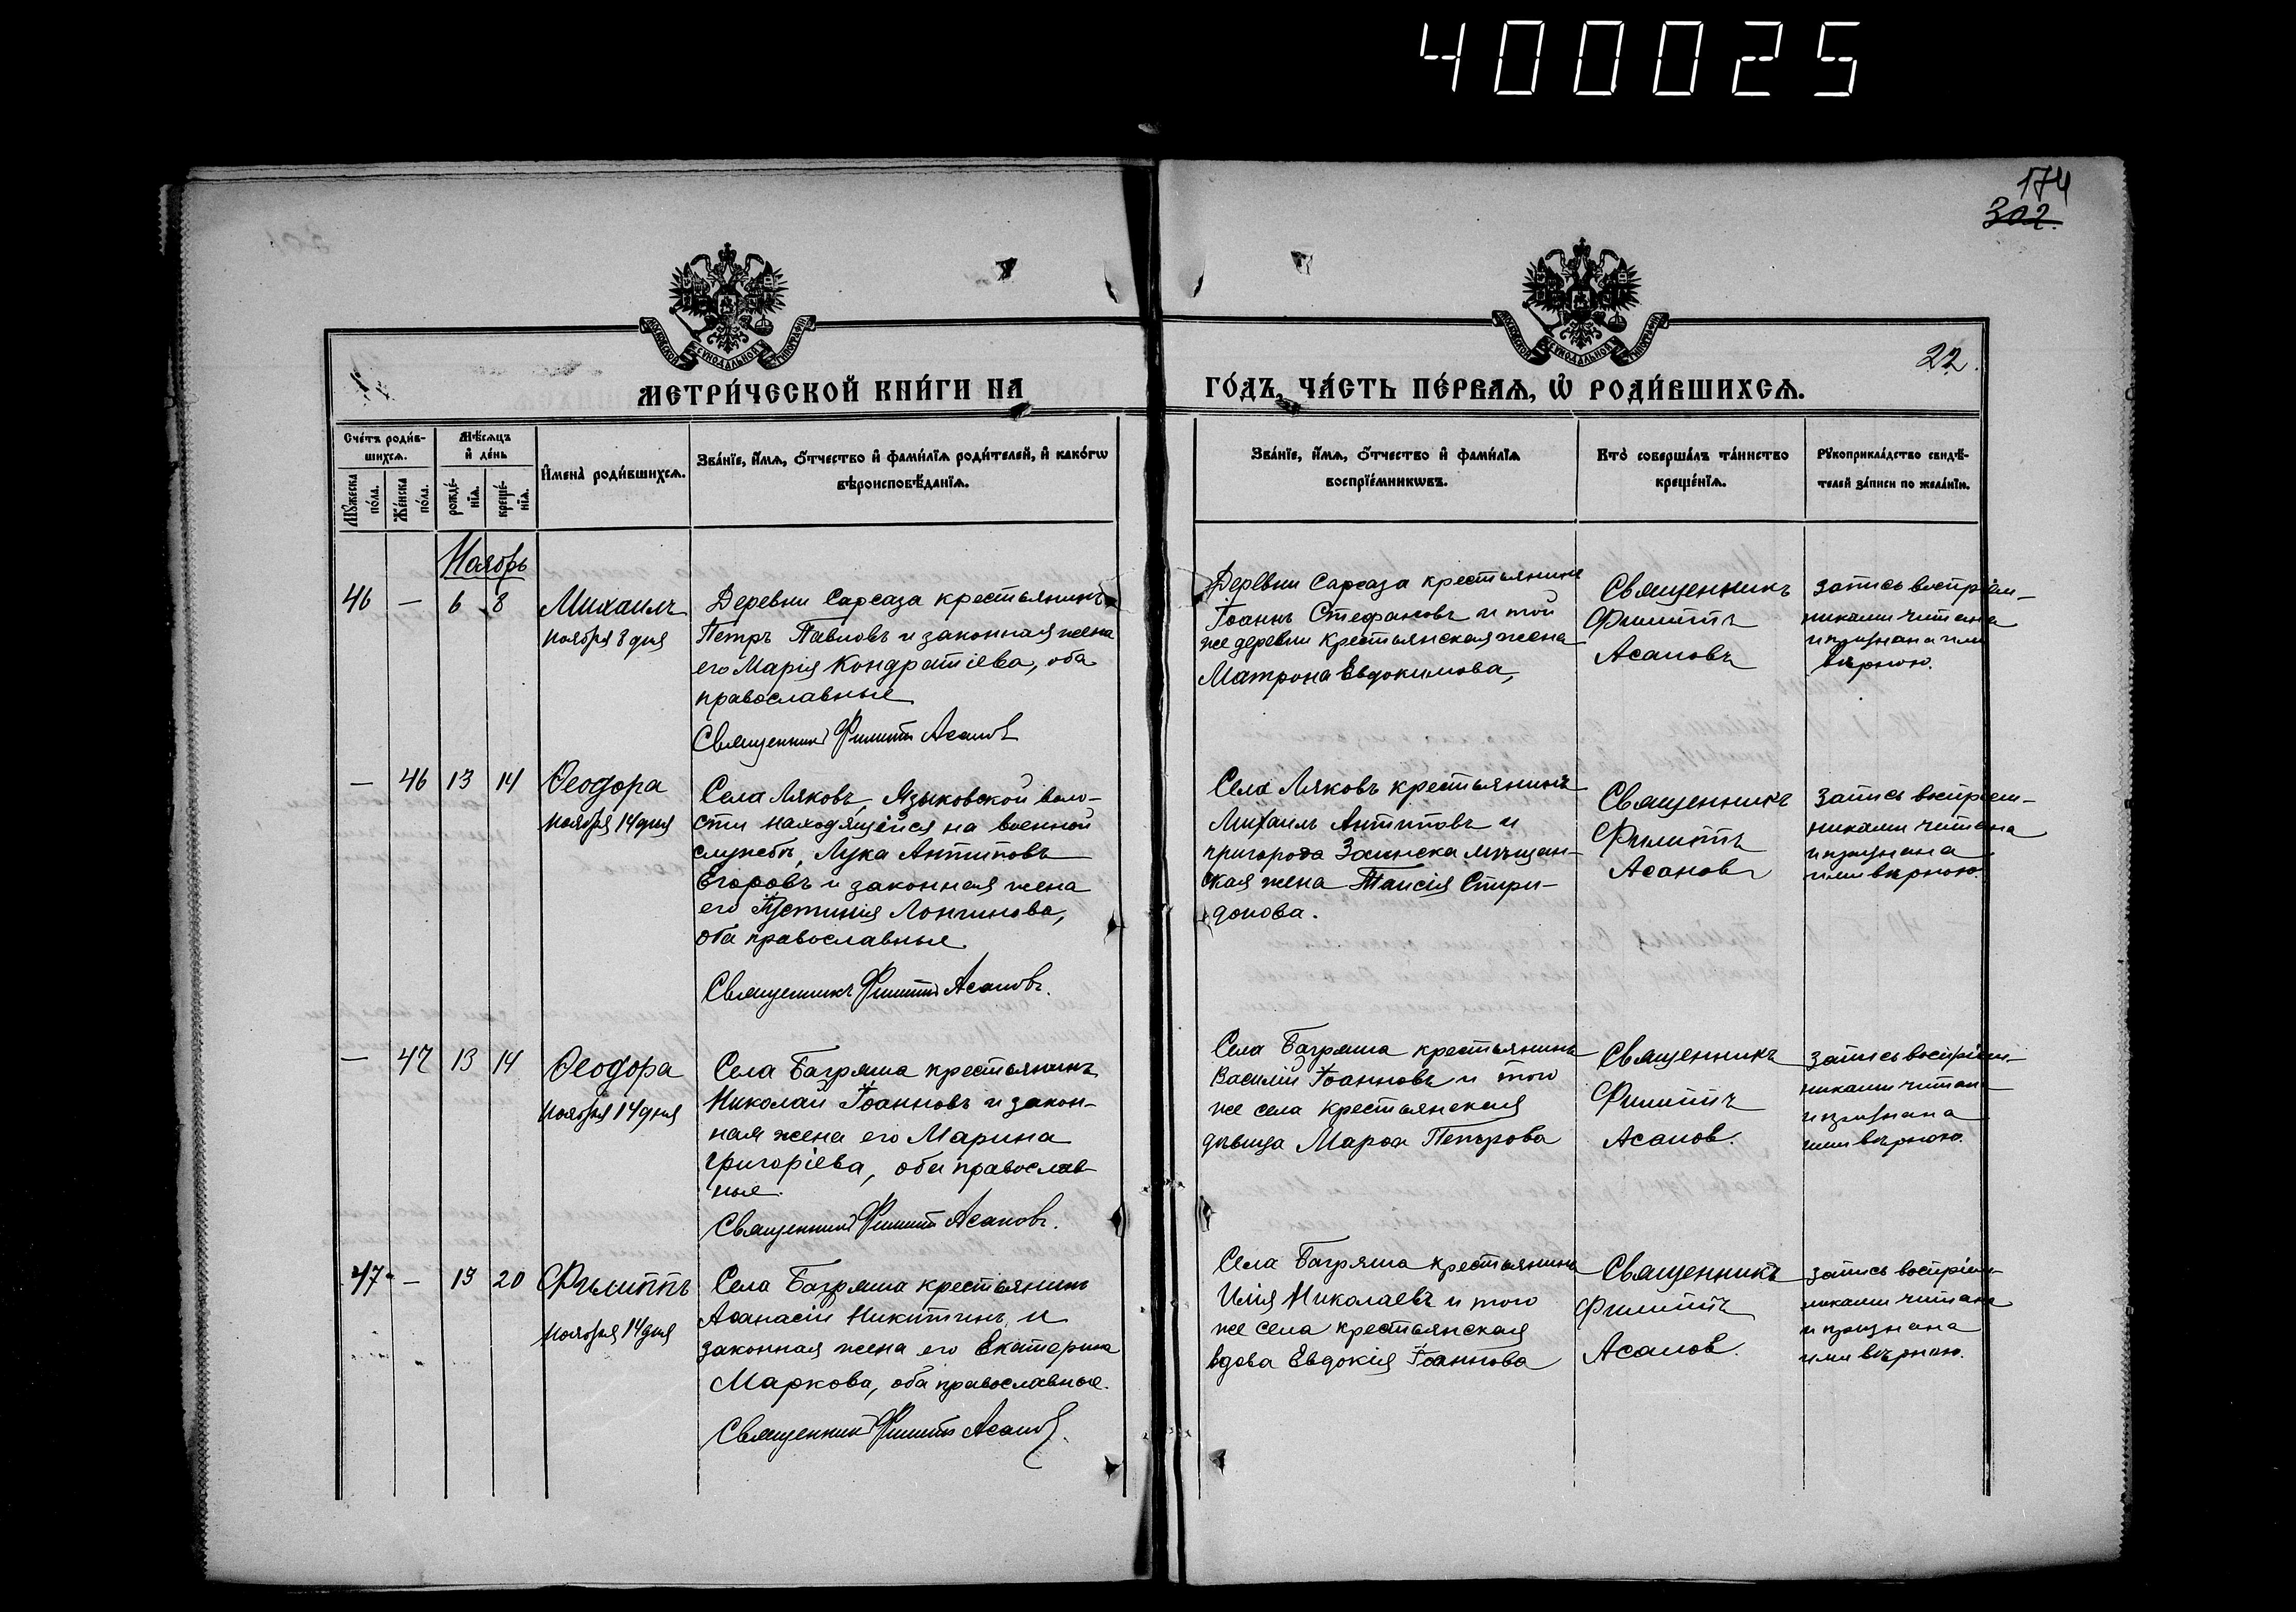 400025
174
302.
22.
МОСКОВСКОЙ СѴНОДАЛЬНОЙ ТИПОГРАФІИ
МОСКОВСКОЙ СѴНОДАЛЬНОЙ ТИПОГРАФІИ
МЕТРИ́ЧЕСКОЙ КНИ́ГИ НА
ГО́ДЪ, ЧА́СТЬ ПЕ́РВАѦ, Ѡ҆ РОДИ́ВШИХСѦ.
Сче́тъ роди́в-
шихсѧ.
Мꙋ́жеска по́ла.
Же́нска по́ла.
Мѣ́сѧцъ
и҆ де́нь
рожде́-
нїѧ.
креще́-
нїѧ.
И҆мена̀ роди́вшихсѧ.
Зва́нїе, и҆́мѧ, ѻ҆́тчество и҆ фами́лїѧ роди́телей, и҆ како́гѡ
вѣроисповѣ́данїѧ.
Зва́нїе, и҆́мѧ, ѻ҆́тчество и҆ фами́лїѧ
воспрїе́мникѡвъ.
Кто̀ соверша́лъ та́инство
креще́нїѧ.
Рꙋкоприкла́дство свидѣ́-
телей за́писи по жела́нїю.
Ноябрь
46 — 6 8 Михаилъ
Ноября 8 дня
Деревни Сарсаза крестьянинъ
Петръ Павловъ и законная жена
его Марія Кондратіева, оба
православные
Священникъ Филиппъ Асановъ
Деревни Сарсаза крестьянинъ
Іоаннъ Стефановъ и той
же деревни крестьянская жена
Матрона Евдокимова,
Священникъ
Филиппъ
Асановъ
Запись воспріем-
никами читана
и признана ими
вѣрною.
— 46 13 14 Ѳеодора
Ноября 14 дня
Села Ляковъ, Языковской воло-
сти находящійся на военной
службѣ, Лука Антиповъ
Егоровъ и законная жена
его Іустинія Лонгинова,
оба православные
Священникъ Филиппъ Асановъ.
Села Ляковъ крестьянинъ
Михаилъ Антиповъ и
пригорода Заинска мѣщан-
ская жена Таисія Спири-
донова.
Священникъ
Филиппъ
Асановъ
Запись воспріем-
никами читана
и признана
ими вѣрною.
— 47 13 14 Ѳеодора
Ноября 14 дня
Села Багряша крестьянинъ
Николай Іоанновъ и закон-
ная жена его Марина
Григоріева, оба православ-
ные.
Священникъ Филиппъ Асановъ.
Села Багряша крестьянинъ
Василій Іоанновъ и того
же села крестьянская
дѣвица Марѳа Петрова
Священникъ
Филиппъ
Асанов.
Запись воспріем-
никами читана
и признана
ими вѣрною.
47 — 13 20 Филиппъ
Ноября 14 дня
Села Багряша крестьянинъ
Аѳанасій Никитинъ и
законная жена его Екатерина
Маркова, оба православные.
Священникъ Филиппъ Асановъ.
Села Багряша крестьянинъ
Илія Николаевъ и того
же села крестьянская
вдова Евдокія Іоаннова
Священникъ
Филиппъ
Асанов.
Запись воспріем-
никами читана
и признана
ими вѣрною.